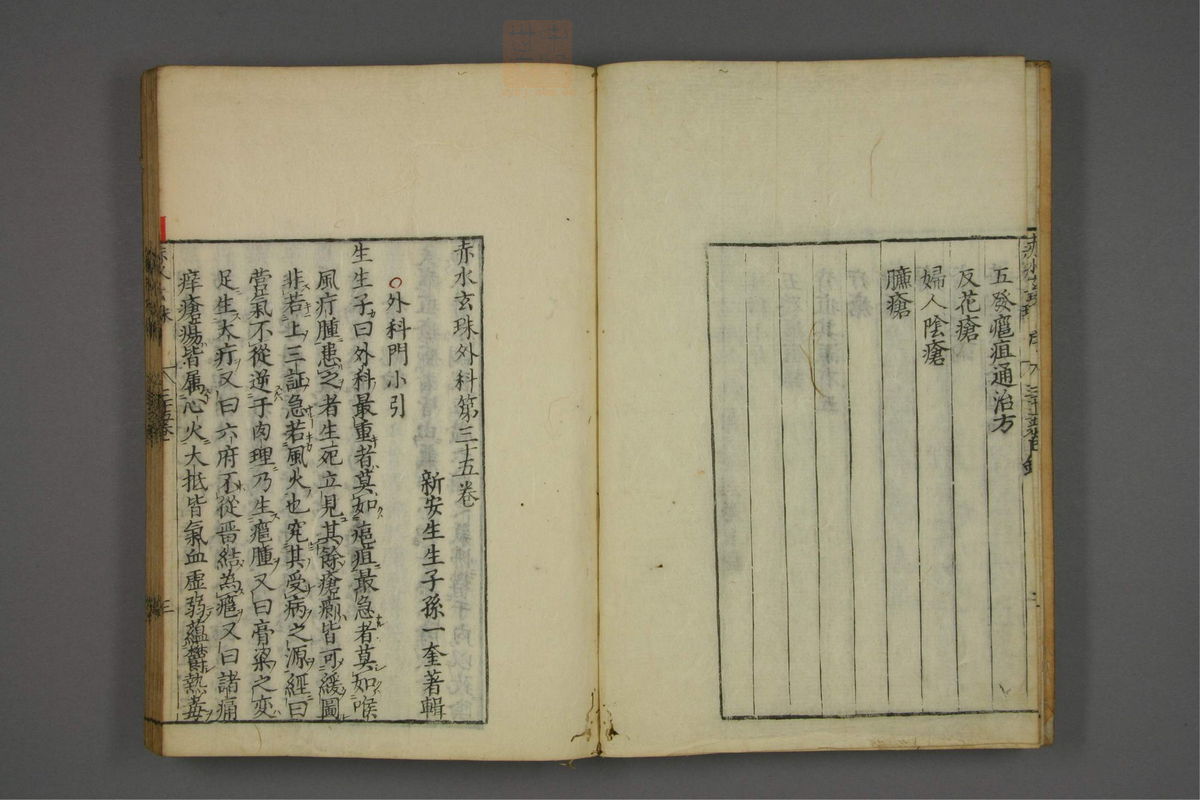 五發癰疽通治方
反花瘡
婦人陰瘡
臁瘡
赤水玄珠外科第三十五卷
新安生生子孫一奎著輯
外科門小引
生生子曰外科最重者莫如癰疽最急者莫如喉
風疔腫患之者生死立見其餘瘡瘌皆可緩圖
非若上三証急若風火也究其受病之源經曰
營氣不從逆于肉理乃生癰腫又曰膏粱之變
足生大疔又曰六府不從晋結為癰又曰諸痛
痒瘡瘍皆属心火大抵皆氣血虛弱蘊鬱熱毒